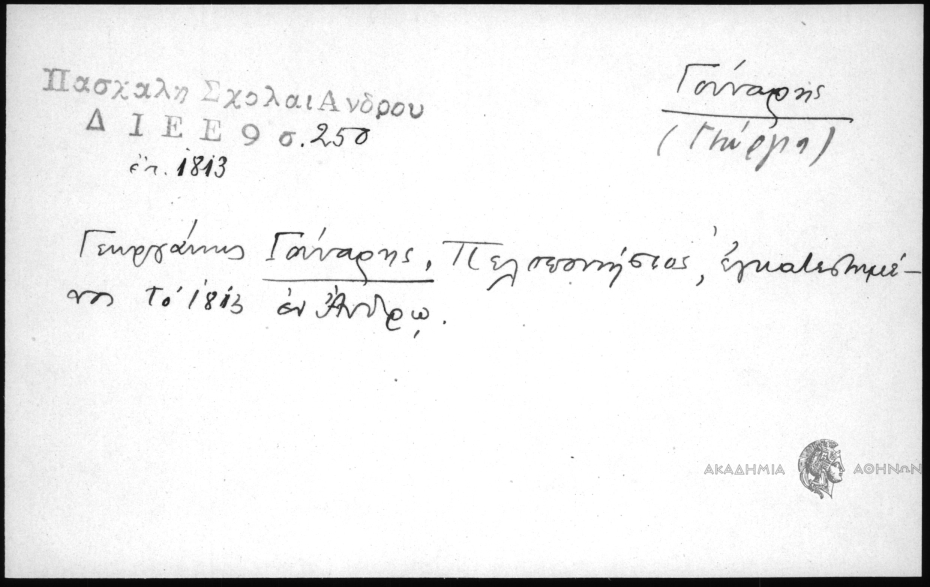 Πασχαλη Σχολαι Ανδρου
Δ Ι Ε Ε 9 σ. 250
ἔτ. 1813
Γούναρης
(Γιώργης)
Γεωργάκης Γούναρης, Πελοποννήσιος, ἐγκατεστημέ-
νος τὸ 1813 ἐν Ἄνδρῳ.
ΑΚΑΔΗΜΙΑ ΑΘΗΝΩΝ